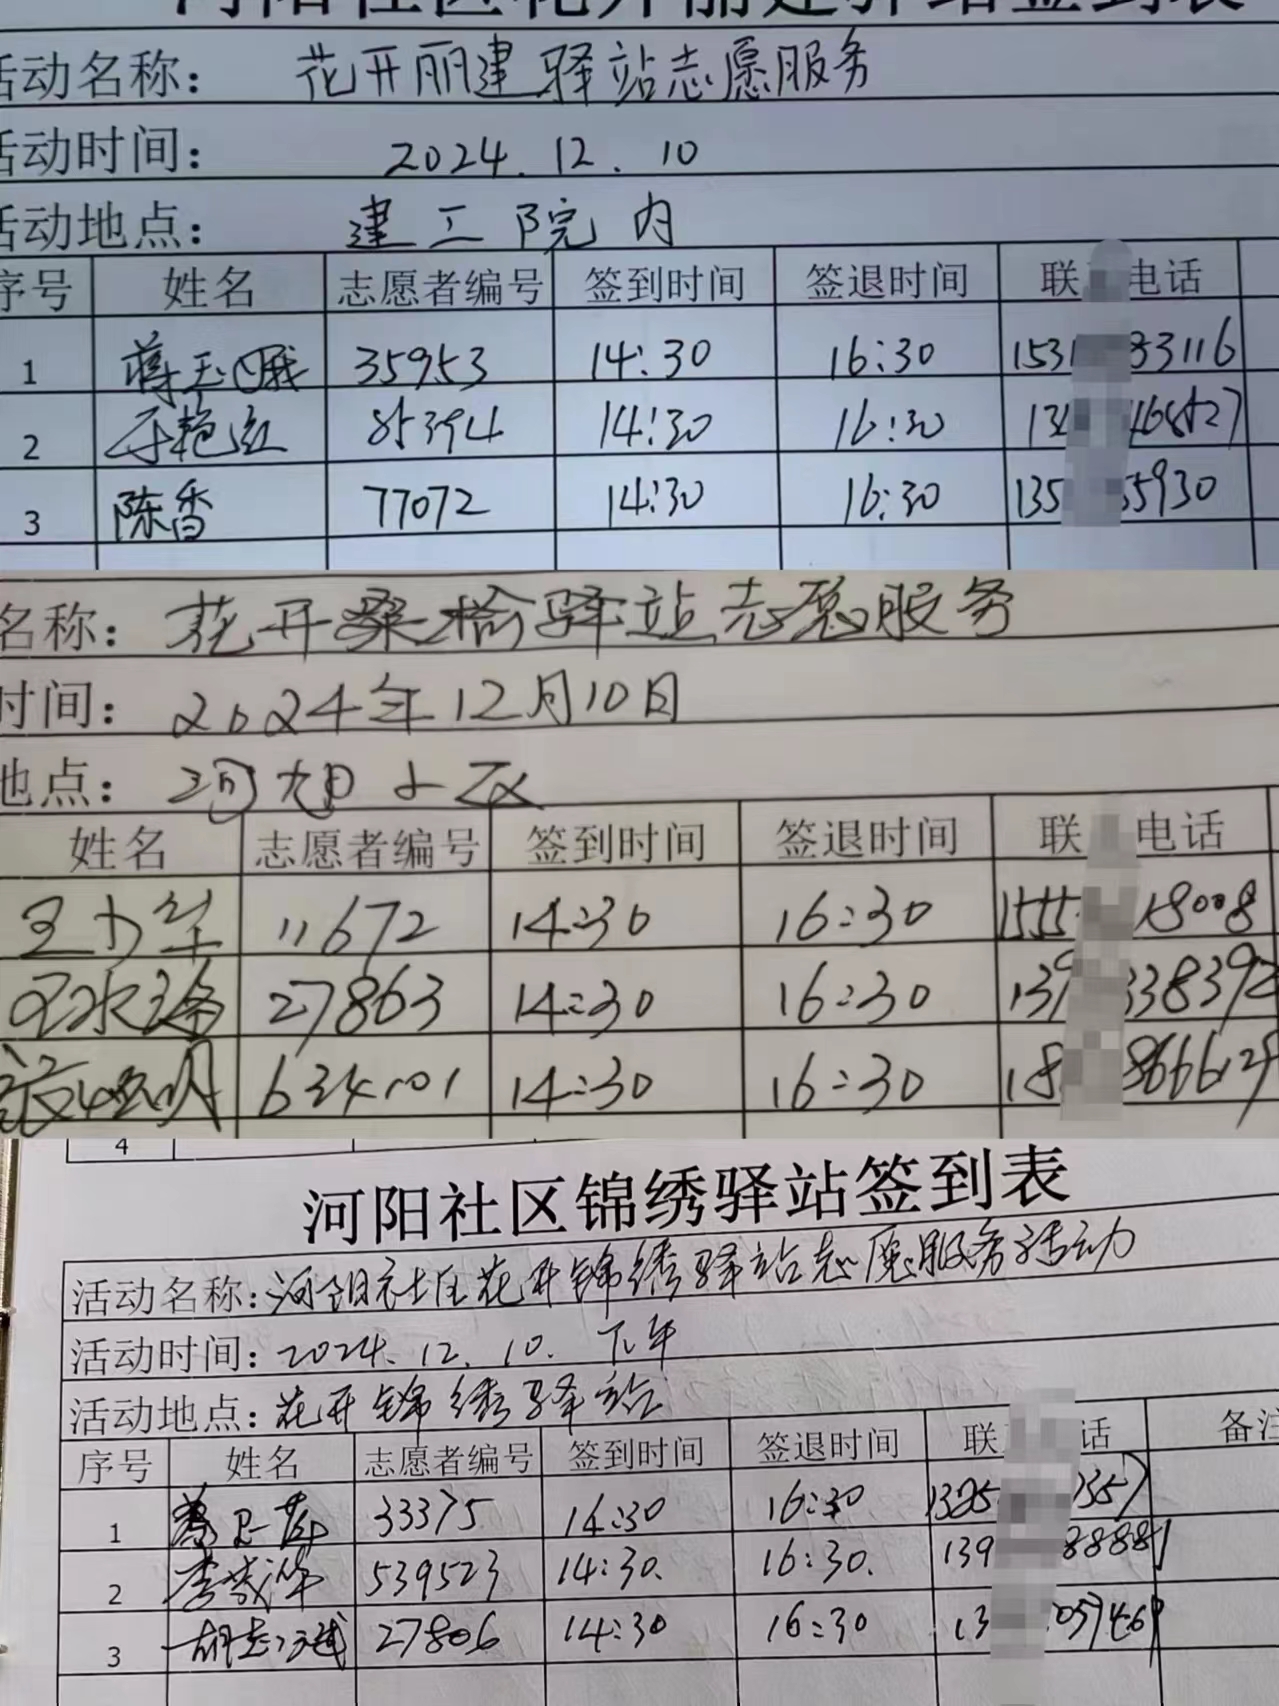 河阳社区花开丽建驿站签到表
活动名称： 花开丽建驿站志愿服务
活动时间： 2024.12.10
活动地点： 建工院内
序号 姓名 志愿者编号 签到时间 签退时间 联 电话
1 蒋玉娥 35953 14:30 16:30 153 33116
2 于艳红 85394 14:30 16:30 13 468527
3 陈香 77072 14:30 16:30 135 55930
名称： 花开桑榆驿站志愿服务
时间： 2024年12月10日
地点： 河阳小区
姓名 志愿者编号 签到时间 签退时间 联 电话
王少华 11672 14:30 16:30 1555 18008
27863 14:30 16:30 139 338392
634101 14:30 16:30 18 866629
4
河阳社区锦绣驿站签到表
活动名称： 河阳社区花开锦绣驿站志愿服务活动
活动时间： 2024.12.10. 下午
活动地点： 花开锦绣驿站
序号 姓名 志愿者编号 签到时间 签退时间 联 话 备注
1 33375 14:30 16:30 1325 357
2 李成华 539523 14:30. 16:30. 139 88881
3 27806 14:30 16:30 13 057469